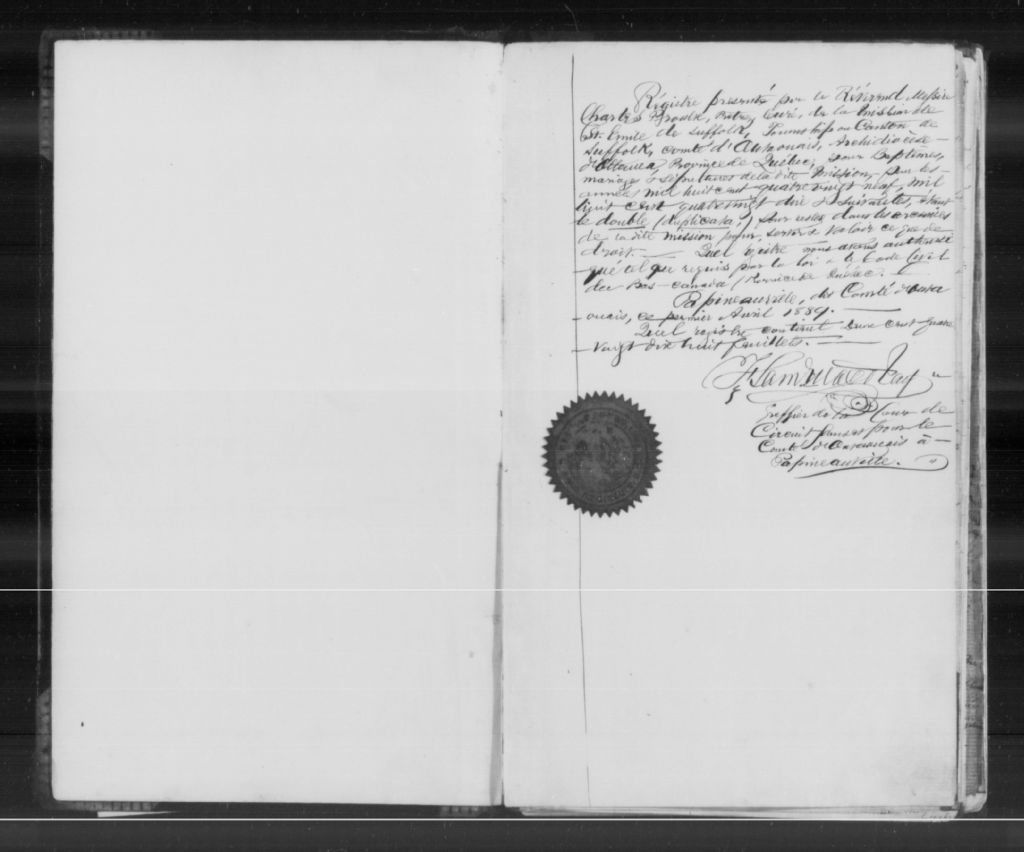 Régistre presenté par le Révérend Messire
Charles Proulx, Ptre, Curé, de la mission de
St. Emile de Suffolk, Township ou Canton de
Suffolk, comté d'Outaouais, Archidiocèse
d'Ottawa, Province de Québec, pour Baptêmes,
mariages & Sépultures de la dite Mission, pour les
années mil huit cent quatre vingt neuf, mil
huit cent quatrevingt dix & suivantes, étant
le double (duplicata,) pour rester dans les
de la dite mission pour servir & valoir ce que de
droit. — Quel régistre nous avons authenti
qué tel que requis par la loi & le Code Civil
du Bas-Canada (Province de Québec. —
Papineauville, dit Comté d'Outa
ouais, ce premier Avril 1889. —
Quel registre contient cent quatre
vingt dix huit feuillets. —
Greffier de la Cour de
Circuit pour le
Comté d'Outaouais à —
Papineauville.